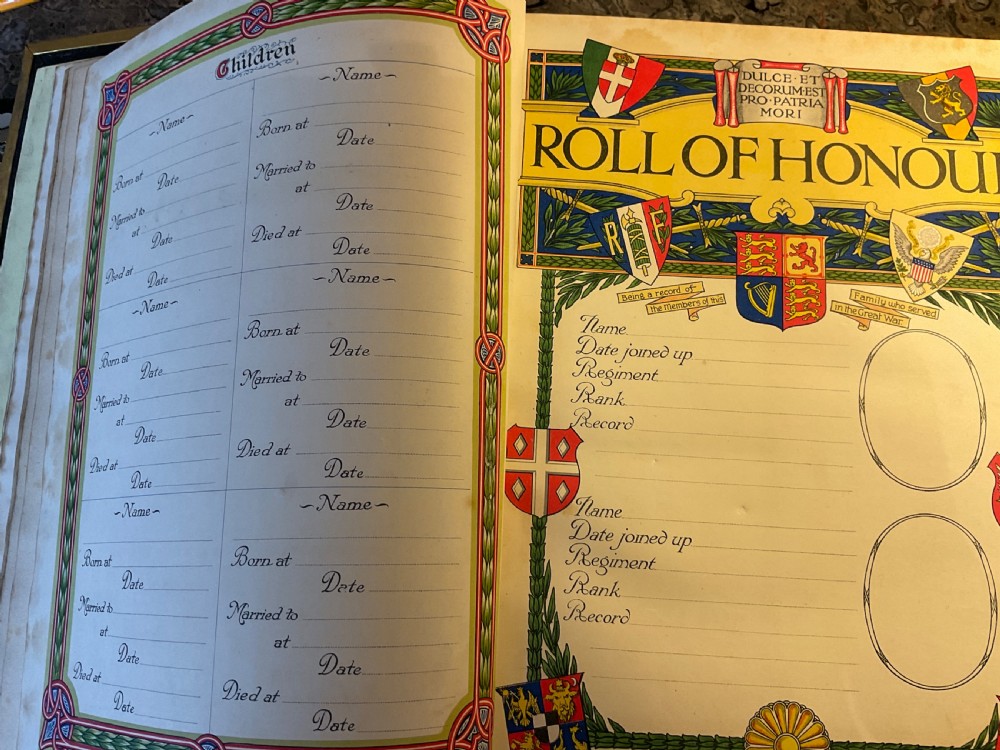 Children
~Name~
Born at
Date
Married to
at
Date
Died at
Date
~Name~
Born at
Date
Married to
at
Date
Died at
Date
~Name~
Born at
Date
Married to
at
Date
Died at
Date
~Name~
Born at
Date
Married to
at
Date
Died at
Date
~Name~
Born at
Date
Married to
at
Date
Died at
Date
~Name~
Born at
Date
Married to
at
Date
Died at
Date
DULCE·ET
DECORUM·EST
PRO·PATRIA
MORI
ROLL OF HONOU
R F
Being a record of
the Members of this
Family who served
in the Great War.
Name
Date joined up
Regiment
Rank
Record
Name
Date joined up
Regiment
Rank
Record